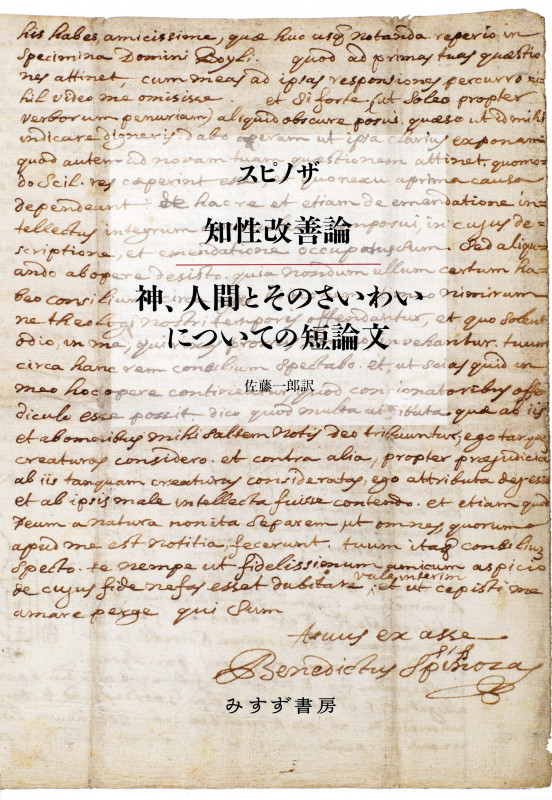 スピノザ
知性改善論
神、人間とそのさいわい
についての短論文
佐藤一郎訳
his habes, amicissime, quæ huc usq notanda reperio in
Specimina Domini Boyli. quod ad primas tuas quæstio
nes attinet, cum meas ad ipsas responsiones percurro ni-
hil video me omisisse. et si forte (ut soleo propter
verborum penuriam) aliquid obscure posui, quæso ut id mihi
indicare digneris dabo operam ut ipsa clarius exponam
quod autem ad novam tuam quæstionem attinet, quomo-
do Scil. res cæperint esse a prima causa
dependeant: de hac re et etiam de emendatione in-
tellectus integrum imposui, in cujus de-
scriptione, et emendatione occupatus sum. Sed aliqu-
ando ab opere desisto. quia nondum ullum certum ha-
beo consilium nimirum
ne theologi nostri temporis offendantur, et quo solent
odio, in me, vehantur. tuum
circa hanc rem consilium Spectabo. et ut scias quid in
meo hoc opere concionatoribus offe
diculo esse possit dico quod multa attributa quæ ab iis
et ab omnibus mihi saltem notis deo tribuuntur, ego tanquam
creaturas considero. et contra alia, propter præjudicia
ab iis tanquam creaturas considerata, ego attributa dei esse
et ab ipsis male intellecta fuisse contendo. et etiam quod
Deum a natura non ita separem ut omnes quorum
apud me est notitia, fecerunt. tuum itaq consilium
Specto. te nempe ut fidelissimum amicum aspicio
de cujus fide nefas esset dubitare. vale interim et ut cepisti me
amare perge qui Sum
tuus ex asse
Benedictus Spinoza
みすず書房